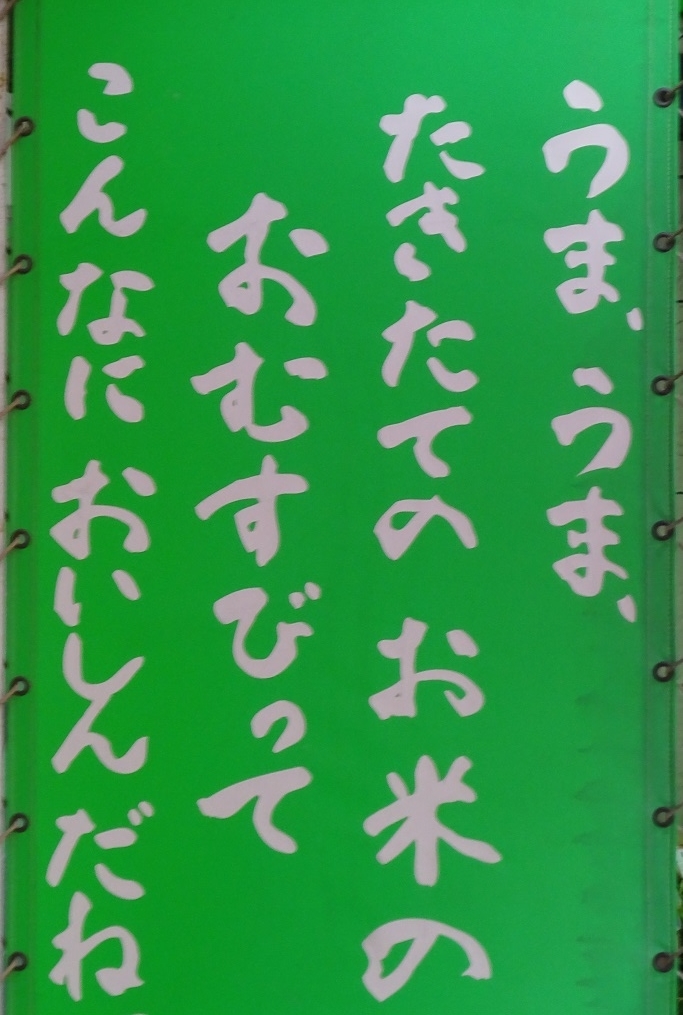 うま、うま、
たきたての お米の
おむすびって
こんなに おいしんだね。